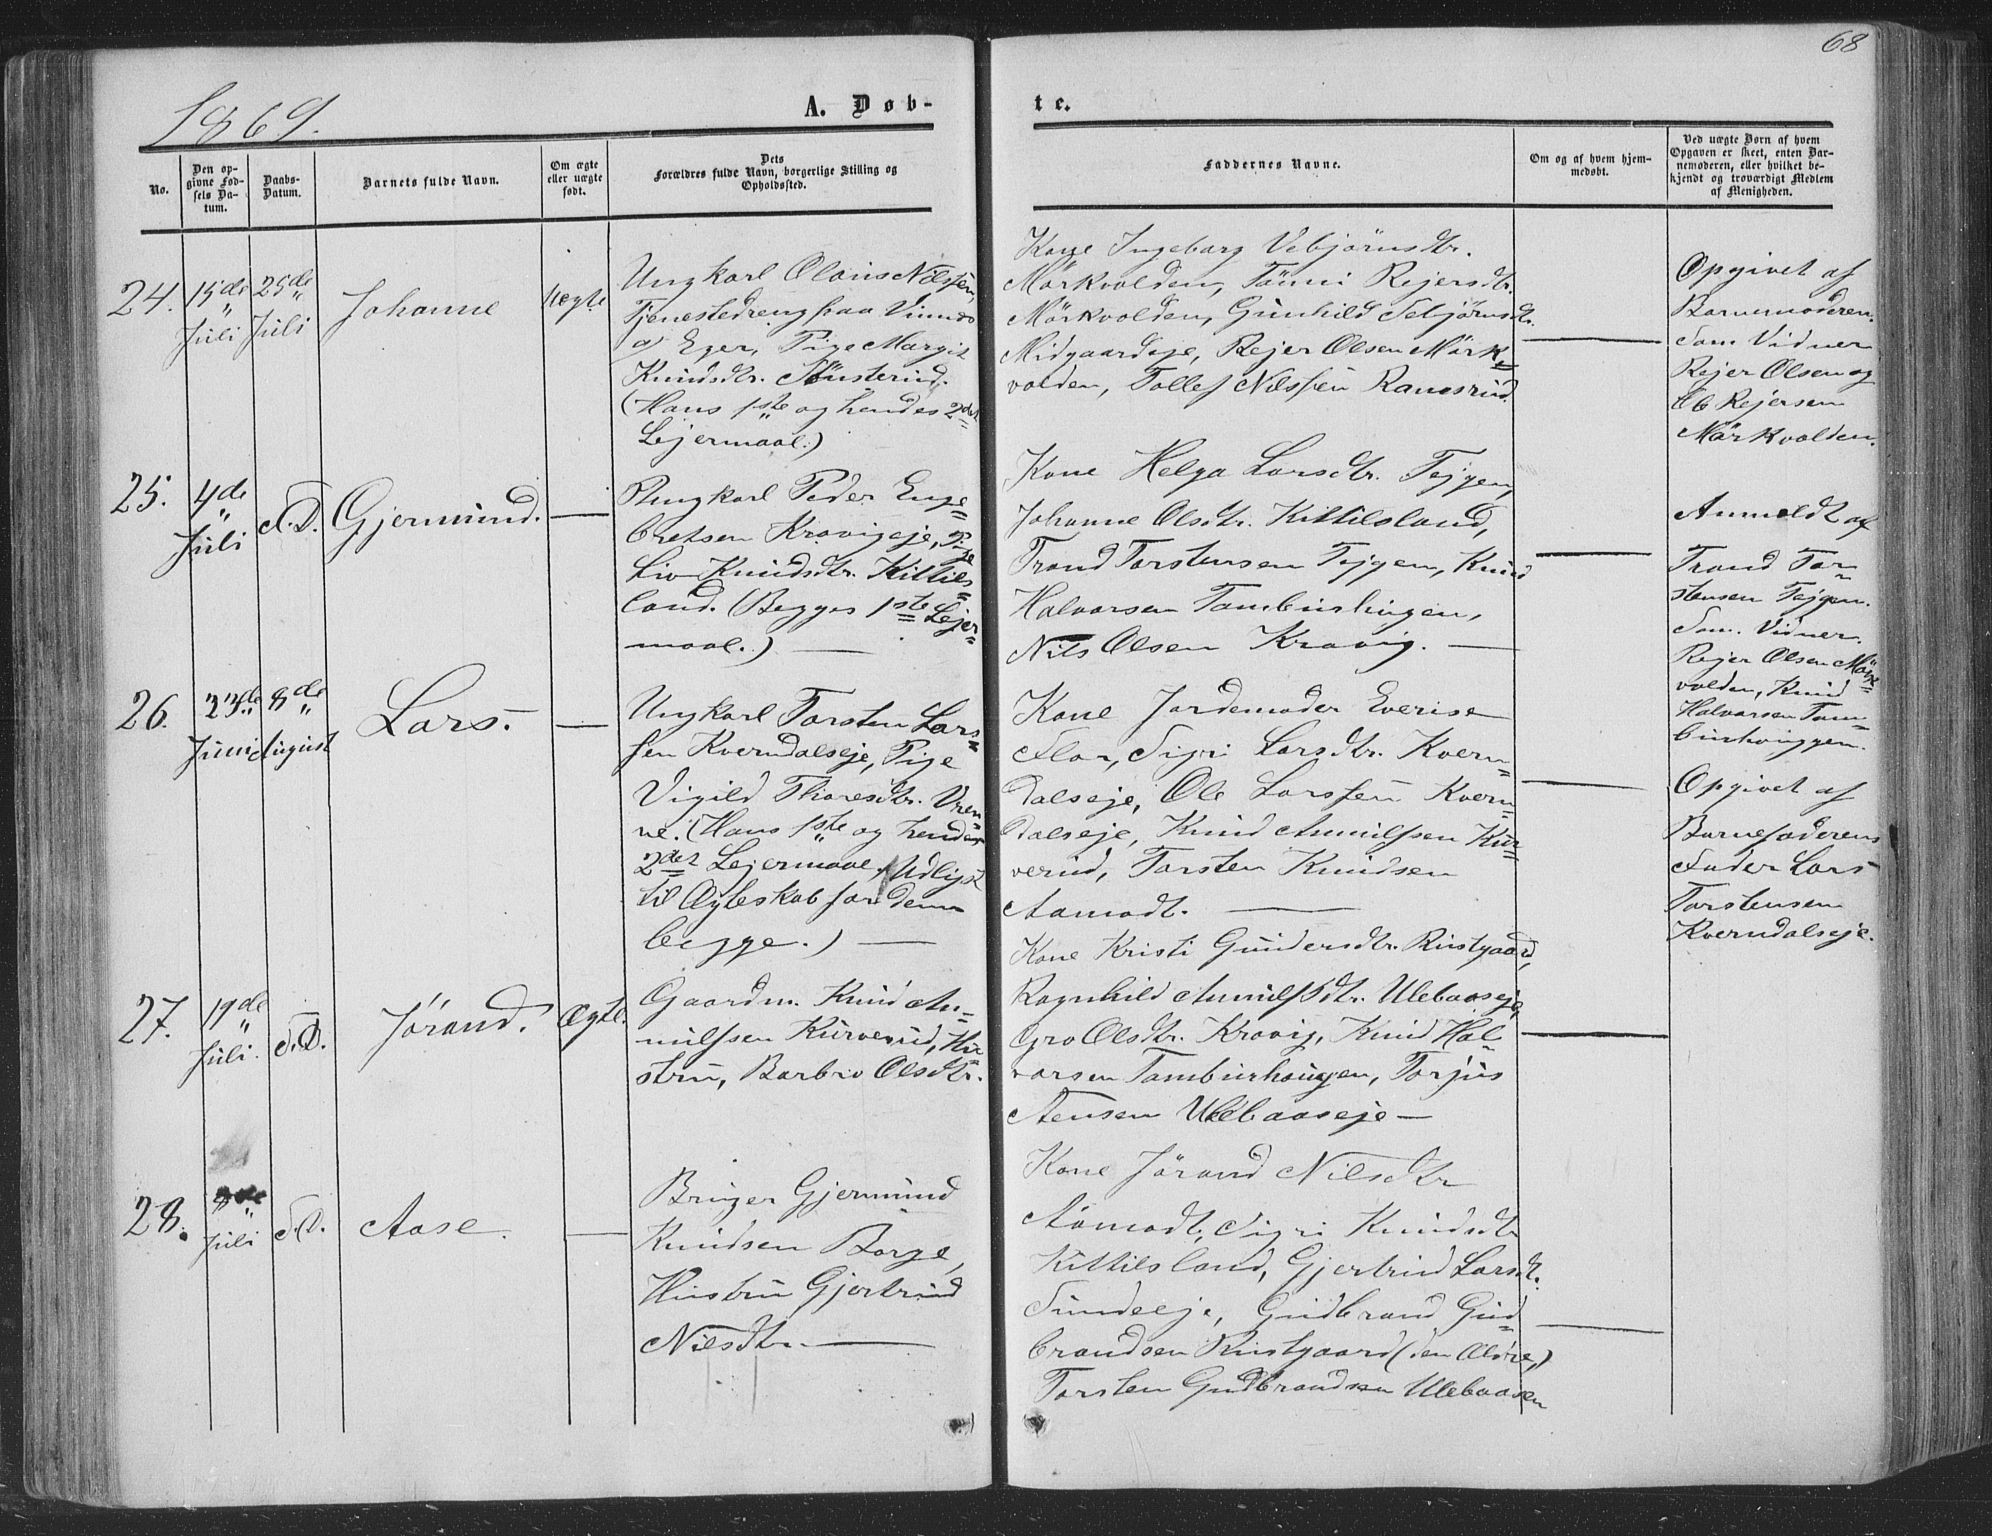 68
1869.
A. Døb-
te.
No.
Den op-
givne Fød-
sels Da-
tum.
Daabs-
Datum.
Barnets fulde Navn.
Om ægte
eller uægte
født.
Dets
Forældres fulde Navn, borgerlige Stilling og
Opholdssted.
Faddernes Navne.
Om og af hvem hjem-
medøbt.
Ved uægte Børn af hvem
Opgaven er skeet, enten Bar-
nemoderen, eller hvilket be-
kjendt og troværdigt Medlem
af Menigheden.
24.
15de
Juli
25de
Juli
Johanne
Uegte
Ungkarl Olaus Nilssen,
Tjenestedreng paa
Eger, Pige Margit
Knudsdtr.
(Hans 1ste og hendes 2det
Lejermaal.)
Kone Ingeborg Vebjörnsdtr.
Mörkvolden, Tönni Rejersdtr.
Mörkvolden, Gunhild
Midgaardseje, Rejer Olsen Mörk=
volden, Tollef Nilssen
Opgivet af
Barnemoderen.
Som Vidner
Rejer Olsen og
Ole Rejersen
Mörkvolden.
25.
4de
Juli
S.D.
Gjermund.
Ungkarl Peder Enge=
bretsen Kravigeje, Pige
Liv Knudsdtr. Kittils=
land. (Begges 1ste Lejer=
maal.)
Kone Helga Larsdtr. Tejgen,
Johanne Olsdtr. Kittilsland,
Trond Torstensen Tejgen, Knud
Halvorsen Tamburhougen,
Nils Olsen Kravig.
Anmeldt af
Trond Tor=
stensen Tejgen.
Som Vidner.
Rejer Olsen Mörk=
volden, Knud
Halvorsen Tam=
burhouggen.
26.
23de
Juni
8de
August
Lars.
Ungkarl Torsten Lars=
sen Kverndalseje, Pige
Vigild Thoresdtr. Vren=
ne. (Hans 1ste og hendes
2det Lejermaal. Udlyst
til Ægteskab for dem
begge.)
Kone Jordemoder Everise
Flor, Sigri Larsdtr. Kvern=
dalseje, Ole Larssen Kvern=
dalseje, Knud Anmilssen Kur=
verud, Torsten Knudsen
Aamodt.
Opgivet af
Barnefaderens
Fader Lars
Torstensen
Kverndalseje.
27.
19de
Juli.
S.D.
Jörand.
Ægte.
Gaardm. Knud An=
milssen Kurverud, Hu
stru, Barbro Olsdtr.
Kone Kristi Gundersdtr. Rustgaard,
Ragnhild Anmilssdtr. Ulebaaseje,
Gro Olsdtr. Kravig, Knud Hal=
vorsen Tamburhougen, Torjus
Ulebaaseje
28.
8de
Juli
S.D.
Aase.
Bruger Gjermund
Knudsen Borge,
Hustru Gjertrud
Nilsdtr.
Kone Jörand Nilsdtr
Aamodt, Sigri Knudsdtr
Kittilsland, Gjertrud Larsdt.
Sundeeje, Gudbrand Gud=
brandsen Rustgaard (den Ældre,)
Torsten Gudbrandsen Ulebaasen